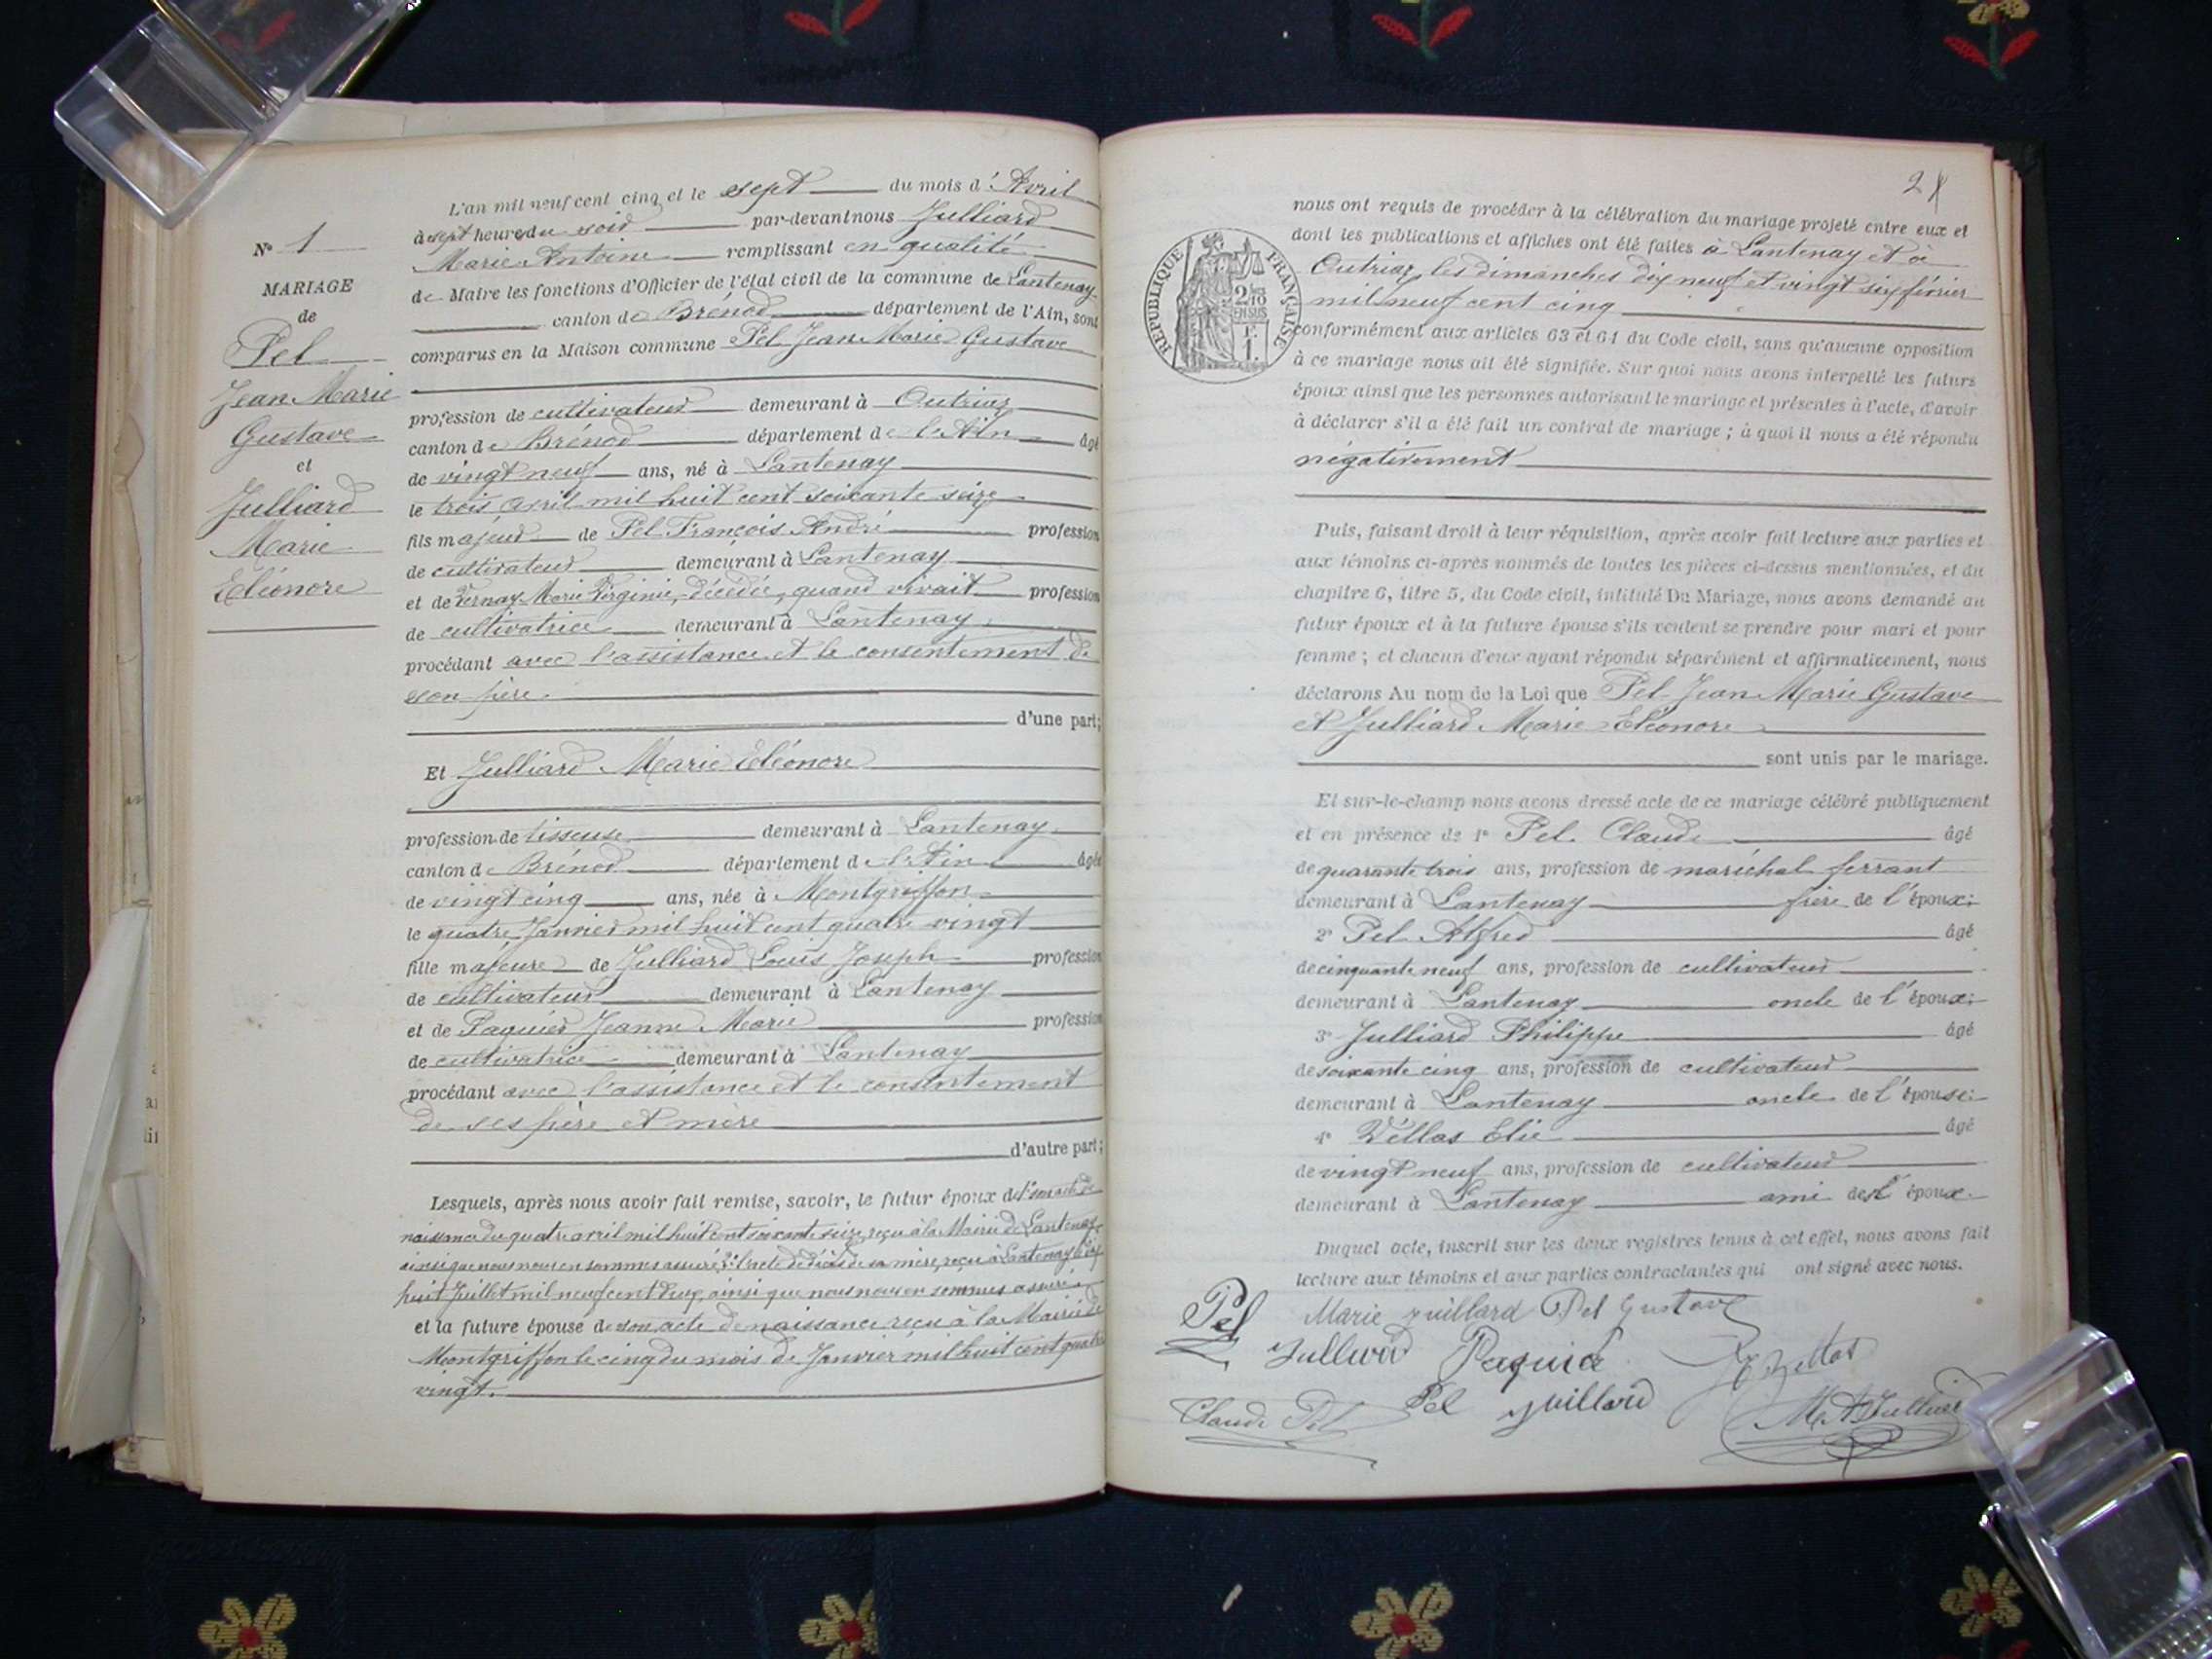 N° 1
MARIAGE
de
Pel
Jean Marie
Gustave
et
Julliard
Marie
Eléonore
L'an mil neuf cent cinq et le sept du mois d'Avril
à sept heures du soir par-devant nous Julliard
Marie Antoine remplissant en qualité
de Maire les fonctions d'Officier de l'état civil de la commune de Lantenay
canton de Brénod département de l'Ain, sont
comparus en la Maison commune Pel Jean Marie Gustave
profession de cultivateur demeurant à Outriaz
canton de Brénod département de l'Ain âgé
de vingt neuf ans, né à Lantenay
le trois avril mil huit cent soixante seize
fils majeur de Pel François André profession
de cultivateur demeurant à Lantenay
et de Vernay Marie Virginie, décédée, quand vivait profession
de cultivatrice demeurant à Lantenay
procédant avec l'assistance et le consentement de
son père.
d'une part;
Et Julliard Marie Eléonore
profession de tisseuse demeurant à Lantenay
canton de Brénod département de l'Ain âgée
de vingt cinq ans, née à Montgriffon
le quatre Janvier mil huit cent quatre vingt
fille majeure de Julliard Louis Joseph profession
de cultivateur demeurant à Lantenay
et de Paquier Jeanne Marie profession
de cultivatrice demeurant à Lantenay
procédant avec l'assistance et le consentement
de ses père et mère
d'autre part;
Lesquels, après nous avoir fait remise, savoir, le futur époux de
naissance du quatre avril mil huit cent soixante seize, reçu à la Mairie de Lantenay
ainsi que nous nous en sommes assuré, 2° l'acte de décès de sa mère, reçu à Lantenay le dix
huit Juillet mil neuf cent deux, ainsi que nous nous en sommes assuré
et la future épouse de son acte de naissance reçu à la Mairie de
Montgriffon le cinq du mois de Janvier mil huit cent quatre
vingt.
2
nous ont requis de procéder à la célébration du mariage projeté entre eux et
dont les publications et affiches ont été faites à Lantenay et à
Outriaz, les dimanches dix neuf et vingt six février
mil neuf cent cinq
RÉPUBLIQUE FRANÇAISE
2/10 EN SUS
F.
1.
conformément aux articles 63 et 64 du Code civil, sans qu'aucune opposition
à ce mariage nous ait été signifiée. Sur quoi nous avons interpellé les futurs
époux ainsi que les personnes autorisant le mariage et présentes à l'acte, d'avoir
à déclarer s'il a été fait un contrat de mariage ; à quoi il nous a été répondu
négativement
Puis, faisant droit à leur réquisition, après avoir fait lecture aux parties et
aux témoins ci-après nommés de toutes les pièces ci-dessus mentionnées, et du
chapitre 6, titre 5, du Code civil, intitulé Du Mariage, nous avons demandé au
futur époux et à la future épouse s'ils veulent se prendre pour mari et pour
femme ; et chacun d'eux ayant répondu séparément et affirmativement, nous
déclarons Au nom de la Loi que Pel Jean Marie Gustave
et Julliard Marie Eléonore
sont unis par le mariage.
Et sur-le-champ nous avons dressé acte de ce mariage célébré publiquement
et en présence de 1° Pel Claude âgé
de quarante trois ans, profession de maréchal ferrant
demeurant à Lantenay frère de l'époux;
2° Pel Alfred âgé
de cinquante neuf ans, profession de cultivateur
demeurant à Lantenay oncle de l'époux;
3° Julliard Philippe âgé
de soixante cinq ans, profession de cultivateur
demeurant à Lantenay oncle de l'épouse;
4° Vellas Elie âgé
de vingt neuf ans, profession de cultivateur
demeurant à Lantenay ami de l'époux
Duquel acte, inscrit sur les deux registres tenus à cet effet, nous avons fait
lecture aux témoins et aux parties contractantes qui ont signé avec nous.
Pel Marie Juillard Pel Gustave
Julliard Paquier
Claude Pel Pel Juillard M. A. Julliard